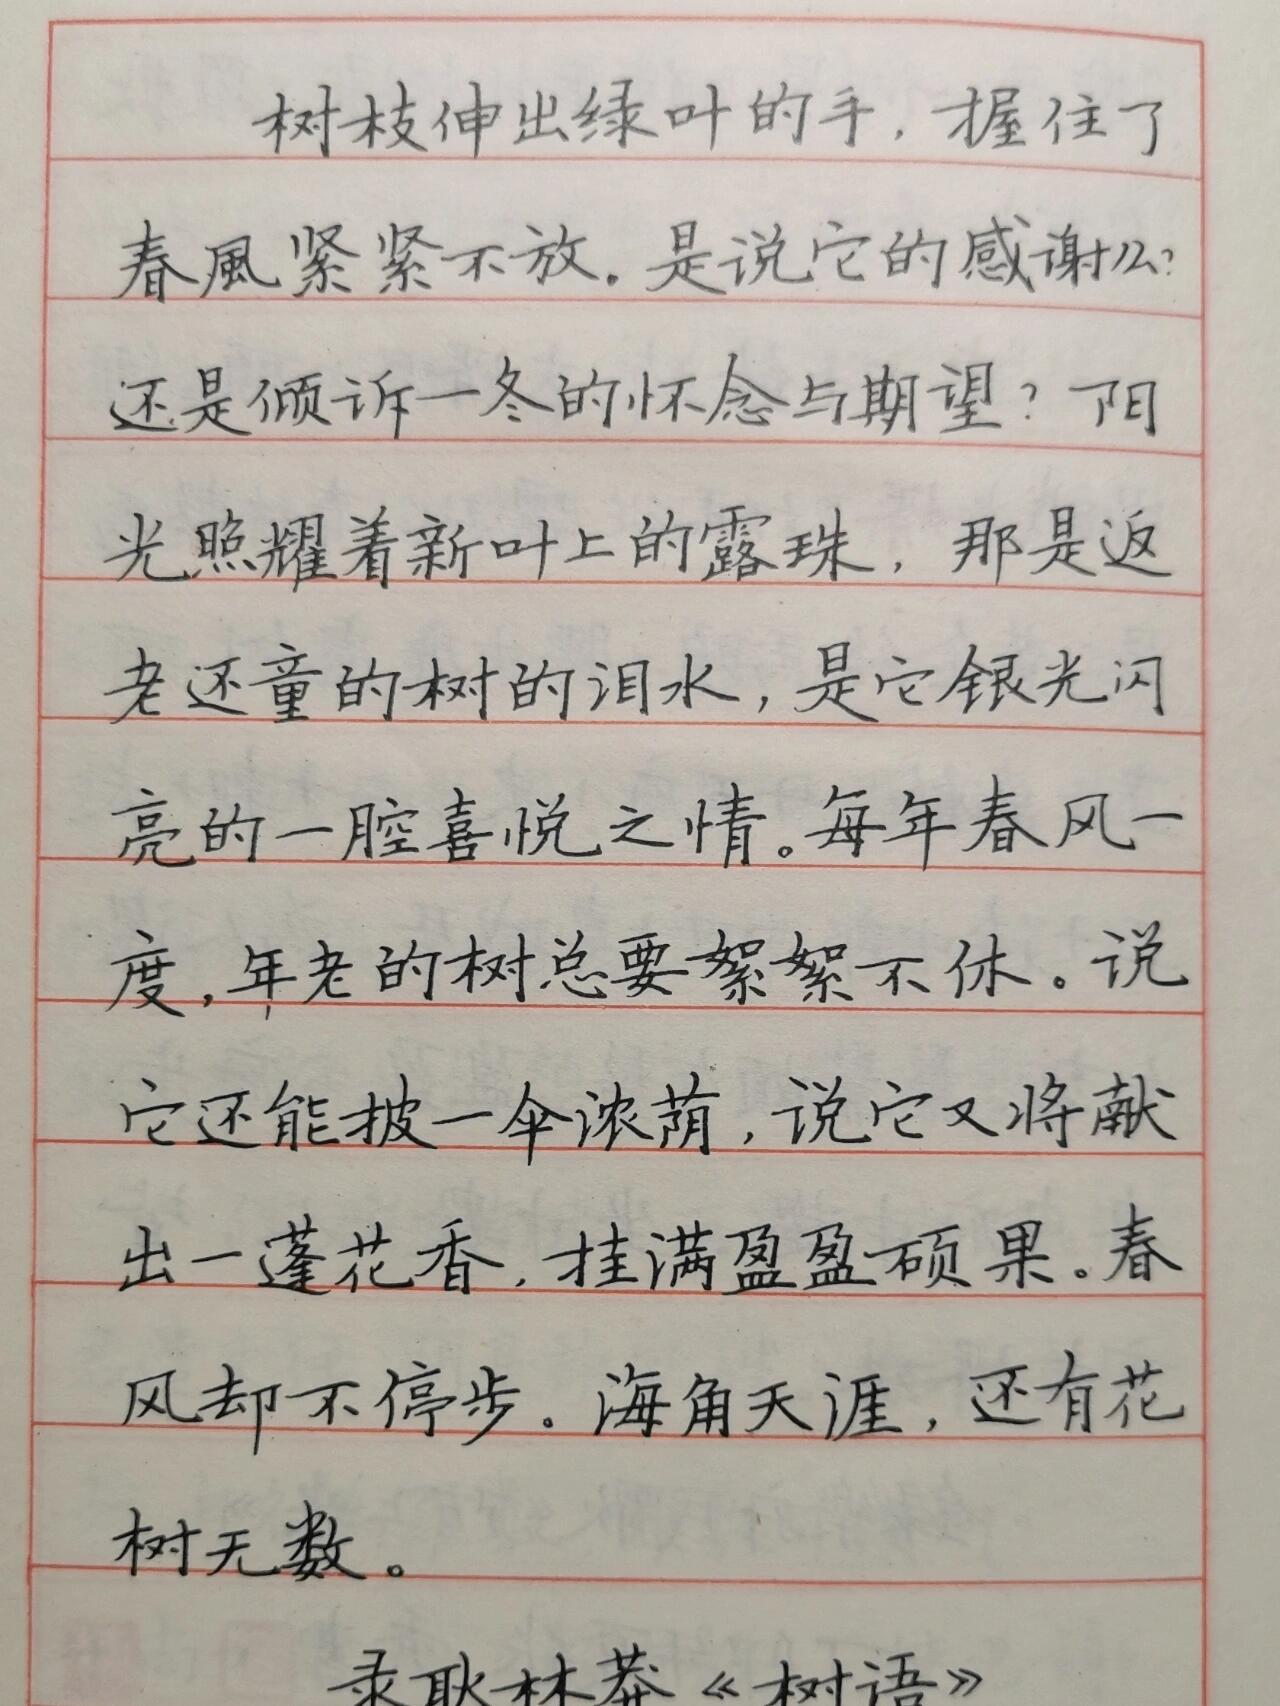 树枝伸出绿叶的手，握住了
春風紧紧不放。是说它的感谢么?
还是倾诉一冬的怀念与期望？阳
光照耀着新叶上的露珠，那是返
老还童的树的泪水，是它银光闪
亮的一腔喜悦之情。每年春风一
度，年老的树总要絮絮不休。说
它还能披一伞浓荫，说它又将献
出一蓬花香，挂满盈盈硕果。春
风却不停步。海角天涯，还有花
树无数。
录耿林莽《树语》